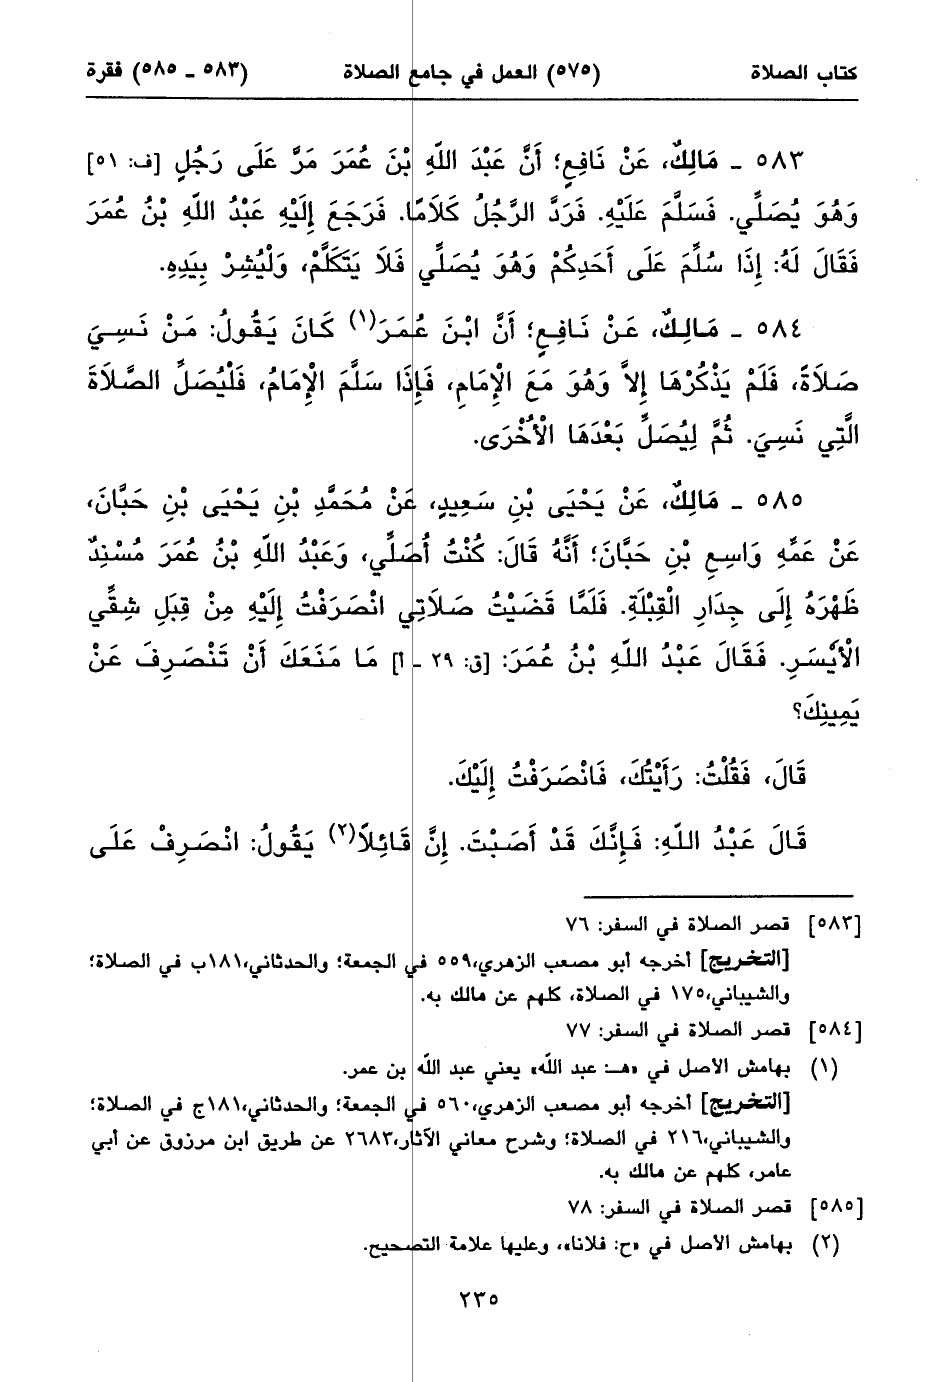 كتاب الصلاة (٥٧٥) العمل في جامع الصلاة (٥٨٣ ـ ٥٨٥) فقرة
٥٨٣ ـ مَالِكٌ، عَنْ نَافِعٍ؛ أَنَّ عَبْدَ اللّهِ بْنَ عُمَرَ مَرَّ عَلَى رَجُلٍ [ف: ٥١]
وَهُوَ يُصَلِّي. فَسَلَّمَ عَلَيْهِ. فَرَدَّ الرَّجُلُ كَلاَمًا. فَرَجَعَ إِلَيْهِ عَبْدُ اللّهِ بْنُ عُمَرَ
فَقَالَ لَهُ: إِذَا سُلِّمَ عَلَى أَحَدِكُمْ وَهُوَ يُصَلِّي فَلاَ يَتَكَلَّمْ، وَلْيُشِرْ بِيَدِهِ.
٥٨٤ ـ مَالِكٌ، عَنْ نَافِعٍ؛ أَنَّ ابْنَ عُمَرَ(١) كَانَ يَقُولُ: مَنْ نَسِيَ
صَلاَةً، فَلَمْ يَذْكُرْهَا إِلاَّ وَهُوَ مَعَ الْإِمَامِ، فَإِذَا سَلَّمَ الْإِمَامُ، فَلْيُصَلِّ الصَّلاَةَ
الَّتِي نَسِيَ. ثُمَّ لِيُصَلِّ بَعْدَهَا الْأُخْرَى.
٥٨٥ ـ مَالِكٌ، عَنْ يَحْيَى بْنِ سَعِيدٍ، عَنْ مُحَمَّدِ بْنِ يَحْيَى بْنِ حَبَّانَ،
عَنْ عَمِّهِ وَاسِعِ بْنِ حَبَّانَ؛ أَنَّهُ قَالَ: كُنْتُ أُصَلِّي، وَعَبْدُ اللّهِ بْنُ عُمَرَ مُسْنِدٌ
ظَهْرَهُ إِلَى جِدَارِ الْقِبْلَةِ. فَلَمَّا قَضَيْتُ صَلاَتِي انْصَرَفْتُ إِلَيْهِ مِنْ قِبَلِ شِقِّي
الْأَيْسَرِ. فَقَالَ عَبْدُ اللّهِ بْنُ عُمَرَ: [ق: ٢٩ ـ أ] مَا مَنَعَكَ أَنْ تَنْصَرِفَ عَنْ
يَمِينِكَ؟
قَالَ، فَقُلْتُ: رَأَيْتُكَ، فَانْصَرَفْتُ إِلَيْكَ.
قَالَ عَبْدُ اللّهِ: فَإِنَّكَ قَدْ أَصَبْتَ. إِنَّ قَائِلاً(٢) يَقُولُ: انْصَرِفْ عَلَى
[٥٨٣] قصر الصلاة في السفر: ٧٦
[التخريج] أخرجه أبو مصعب الزهري، ٥٥٩ في الجمعة؛ والحدثاني، ١٨١ب في الصلاة؛
والشيباني، ١٧٥ في الصلاة، كلهم عن مالك به.
[٥٨٤] قصر الصلاة في السفر: ٧٧
(١) بهامش الأصل في «هـ: عبد اللّه» يعني عبد اللّه بن عمر.
[التخريج] أخرجه أبو مصعب الزهري، ٥٦٠ في الجمعة؛ والحدثاني، ١٨١ج في الصلاة؛
والشيباني، ٢١٦ في الصلاة؛ وشرح معاني الآثار، ٢٦٨٣ عن طريق ابن مرزوق عن أبي
عامر، كلهم عن مالك به.
[٥٨٥] قصر الصلاة في السفر: ٧٨
(٢) بهامش الأصل في «ح: فلانا»، وعليها علامة التصحيح.
٢٣٥